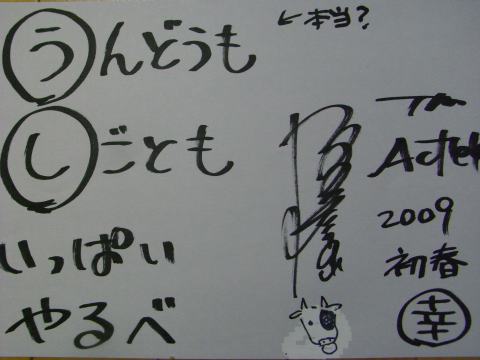 うんどうも
←本当?
しごとも
いっぱい
やるべ
2009
初春
幸